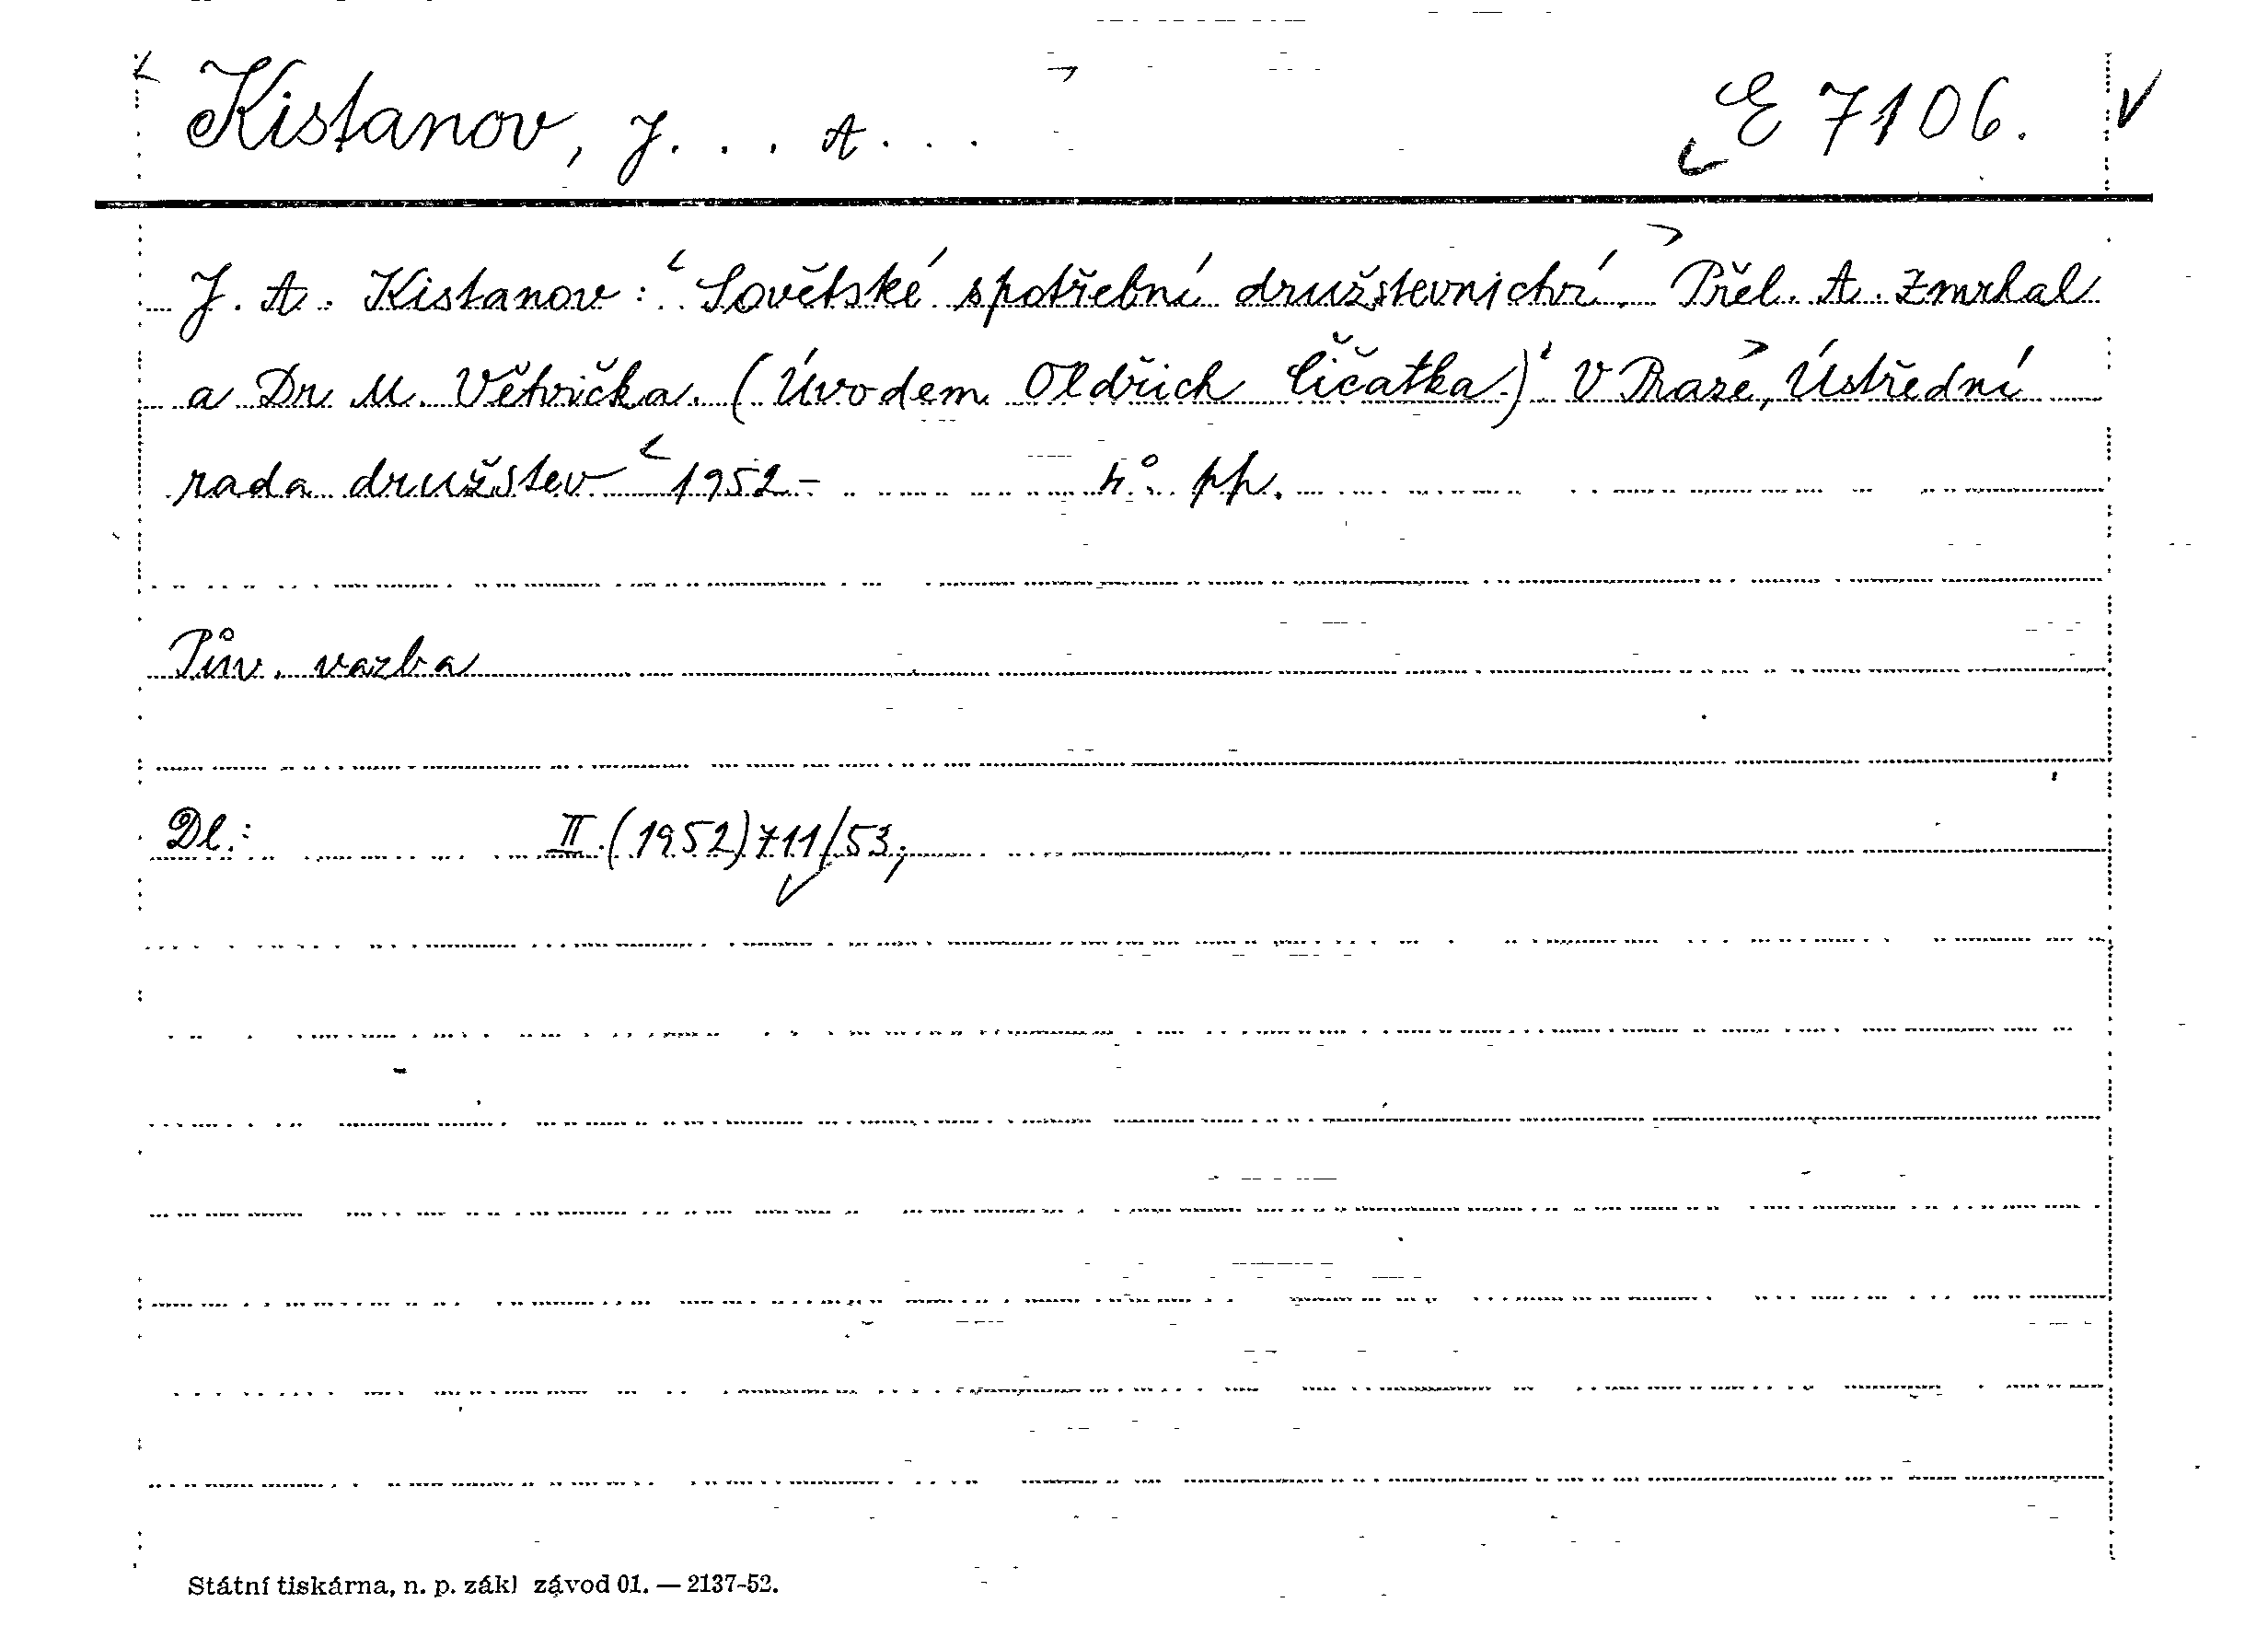 Kistanov, J. . . A. . . E 7106.
J. A. Kistanov: Sovětské spotřební družstevnictví. Přel. A. Zmrhal
a Dr M. Větvička. (Úvodem Oldřich Číčatka.) V Praze, Ústřední
rada družstev 1952- 4°. pp.
Pův. vazba
Dl.: II.(1952)711/53;
Státní tiskárna, n. p. zákl závod 01. — 2137-52.